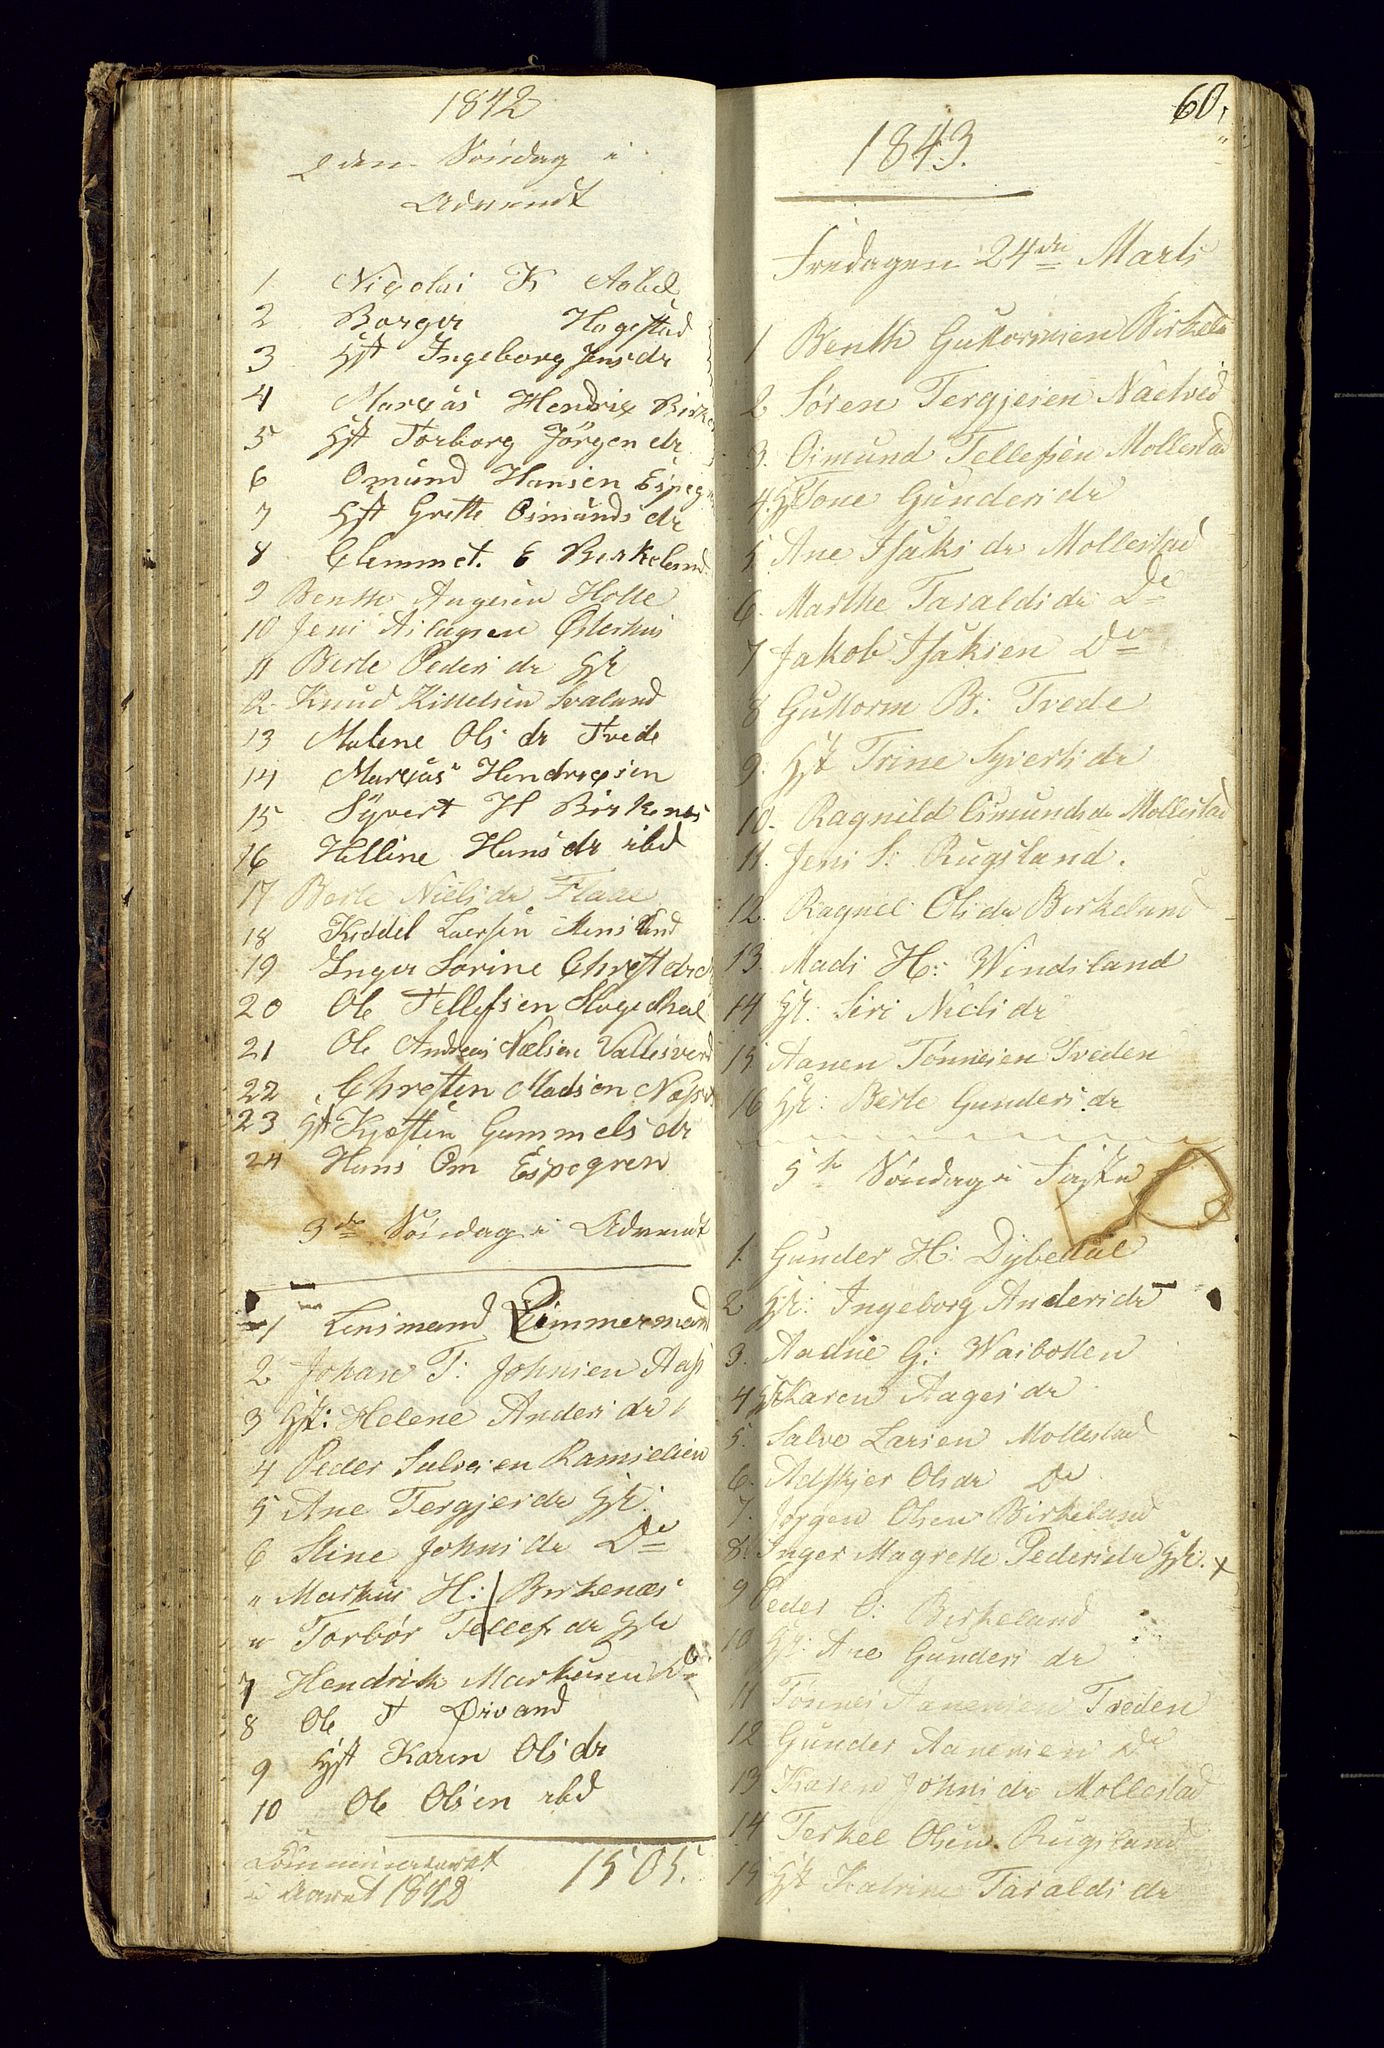 1842
2den Söndag i
Advendt
1 Nicolai K Aabel
2 Borger Hagestad
3 Hst Ingeborg Jensdr
4 Marcus Hendrix Birken
5 Hst Torborg Jörgen dr
6 Omund Hansen Espegr
7 Hst Grette Osmunds dr
8 Clemmet. E Birkeland
9 Benthe Aagesen Holte
10 Jens Aslagsen Østerhus
11 Berte Peders dr Hst
12 Knud Kittelsen Svaland
13 Malene Ols dr Tvede
14 Marcus Hendricsen
15 Syvert H Birkenes
16 Helline Hans dr ibd
17 Berte Niels dr Flaae
18 Kiddel Larsen
19 Inger Sorine Christ dr
20 Ole Tellefsen Hagedhal
21 Ole Andreas Nielsen Vallesverd
22 Chresten Madsen
23 Hst Kjesten Gummels dr
24 Hans Om Espegren
3de Söndag i Advendt
1 Lensmand Zimmermand
2 Johan T: Johnsen Aas
3 Hst: Helene Anders dr
4 Peder Salvesen Ramselien
5 Ane Tergjes dr Hst:
6 Stine Johns dr Do
" Markus H: Birkenæs
" Torbör Tellefs dr Hst
7 Hendrik Markusen Do
8 Ole T Øivand
9 Hst Karen Ols dr
10 Ole Olsen ibd
Communiceret
i Aaret 1842 1505.
60.
1843.
Fredagen 24de Marts
1 Benth Guttormsen Birkela
2 Søren Tergjesen Nædved
3. Osmund Tellefsen Mollestad
4. Hst Tone Gunders dr
5 Ane Isaks dr Mollestad
6. Marthe Taralds dr Do
7 Jakob Isaksen Do
8 Guttorm B: Tvede
9. Hst Trine Syverts dr
10. Ragnild Osmunds dr Mollestad
11. Jens S: Rugsland.
12. Ragnel Ols dr Birkeland
13. Mads H: Windsland
14 Hst: Siri Niels dr
15 Aanen Tønnesen Tveden
16 Hst: Berte Gunders dr
5te Søndag i Faste
1. Gunder H: Dybedal
2 Hst: Ingeborg Anders dr
3. Aadne G: Waibotten
4 Hst Karen Aages dr
5. Salve Larsen Mollestad
6. Adskjer Ols dr Do
7. Jørgen Olsen Birkeland
8. Inger Magrette Peders dr Hst. x
9 Peder O: Birkeland
10 Hst: Ane Gunders dr
11 Tønnes Aanensen Tveden
12 Gunder Aanensen Do
13 Karen Johns dr Mollestad
14 Terkel Olsen Rugsland
15 Hst Katrine Taralds dr